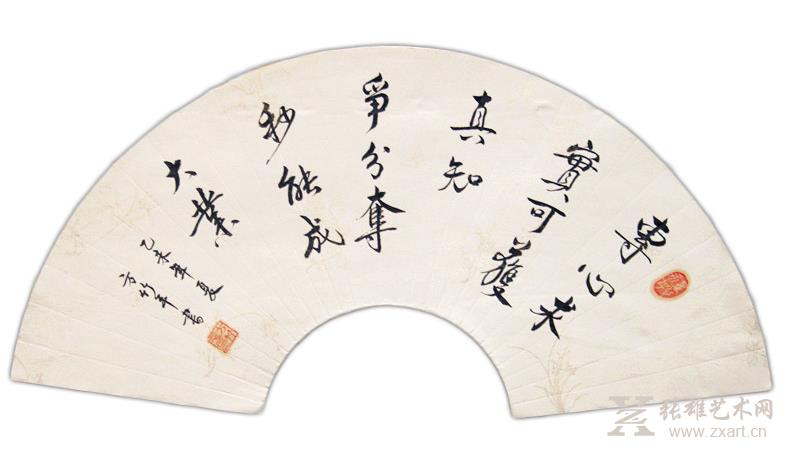 專心求
實可獲
真知
爭分奪
秒能成
大業
乙未年夏
方竹年書
张雄艺术网
www.zxart.cn